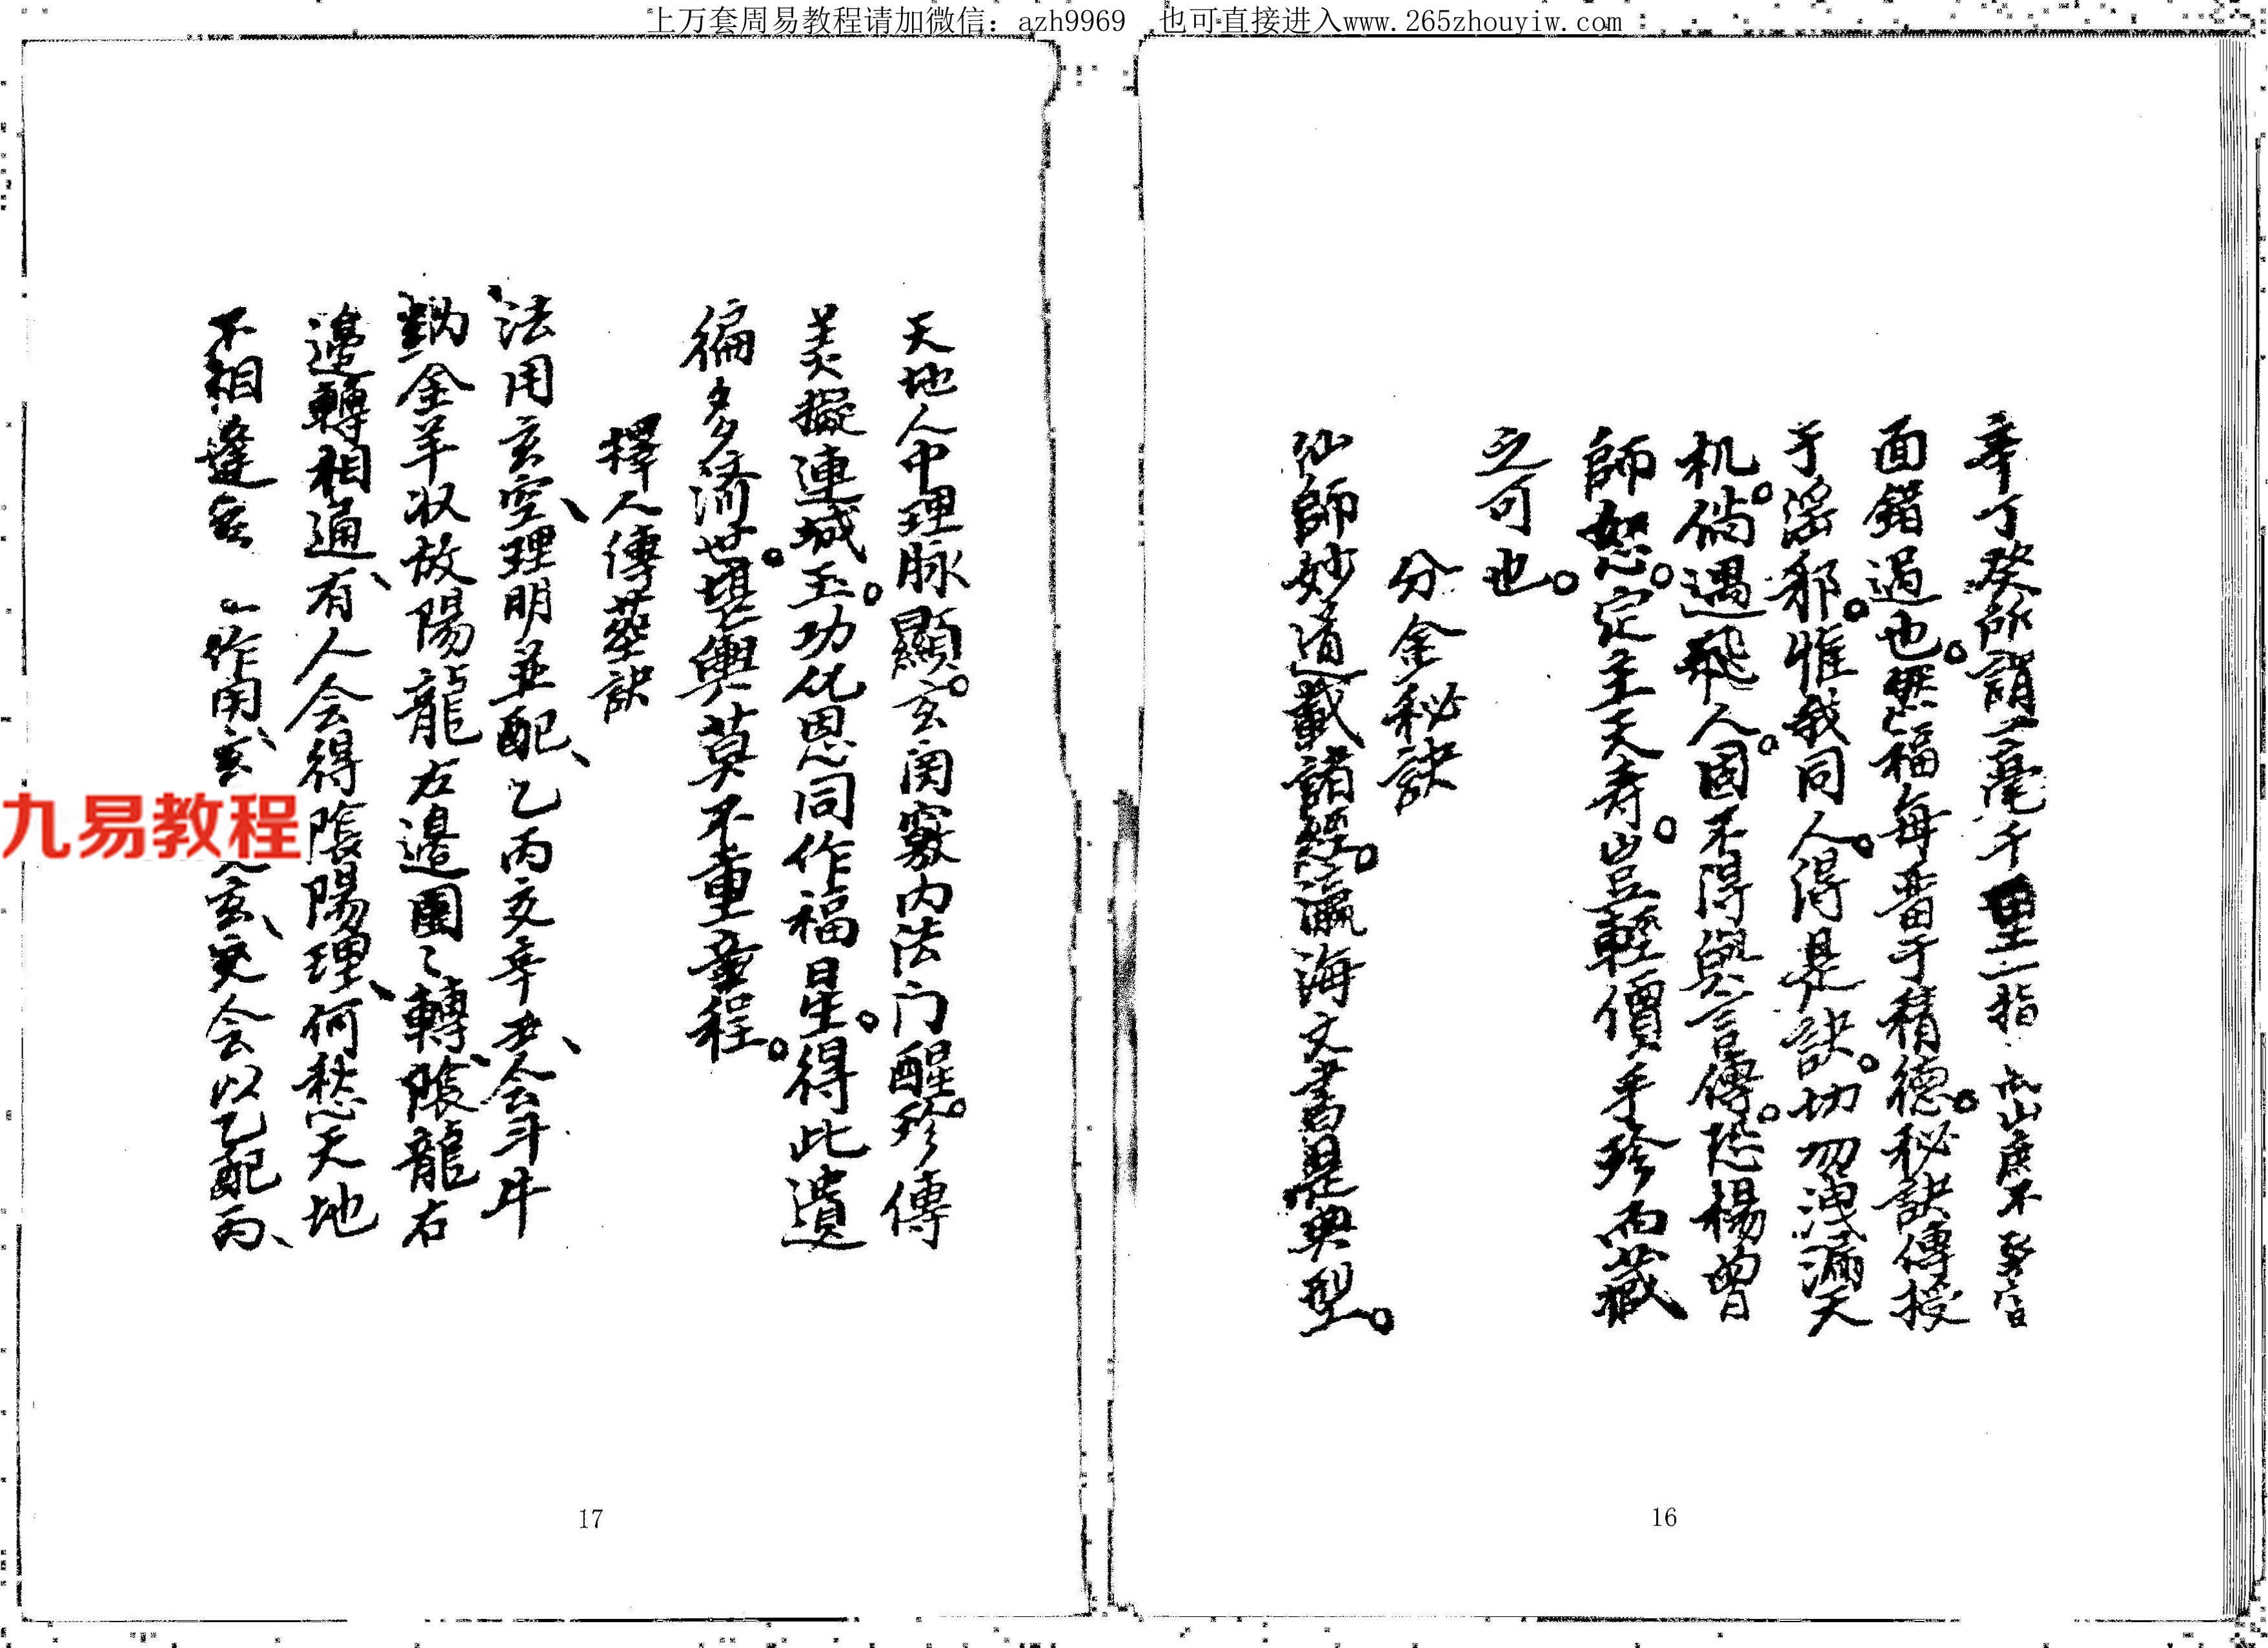 上万套周易教程请加微信：azh9969　也可直接进入www.265zhouyiw.com
辛丁癸所謂毫千里一指山家不
面錯過也無福每番于積德。秘訣傳授
于滛邪。惟我同人。得是訣。切勿洩漏天
机。倘遇飛人。因不得與言傳。恐楊曾
師怒。定主天寿。豈輕價乎珍而藏
之可也。
分金秘訣
仙師妙道載諸經。瀛海文書是典型。
16
天地人中理脉顯。玄関竅内法门醒。珍傳
美擬連城玉。功化恩同作福星。得此遺
徧多済世。堪輿莫不重章程。
擇人傳葬訣
法用玄空、理明並配、乙丙交辛、会斗牛
納金羊収放陽龍左邉團〻轉、隂龍右
邉轉相通、有人会得隂陽理、何愁天地
不相逢 作用玄、玄、交会以乙配丙、
九易教程
17